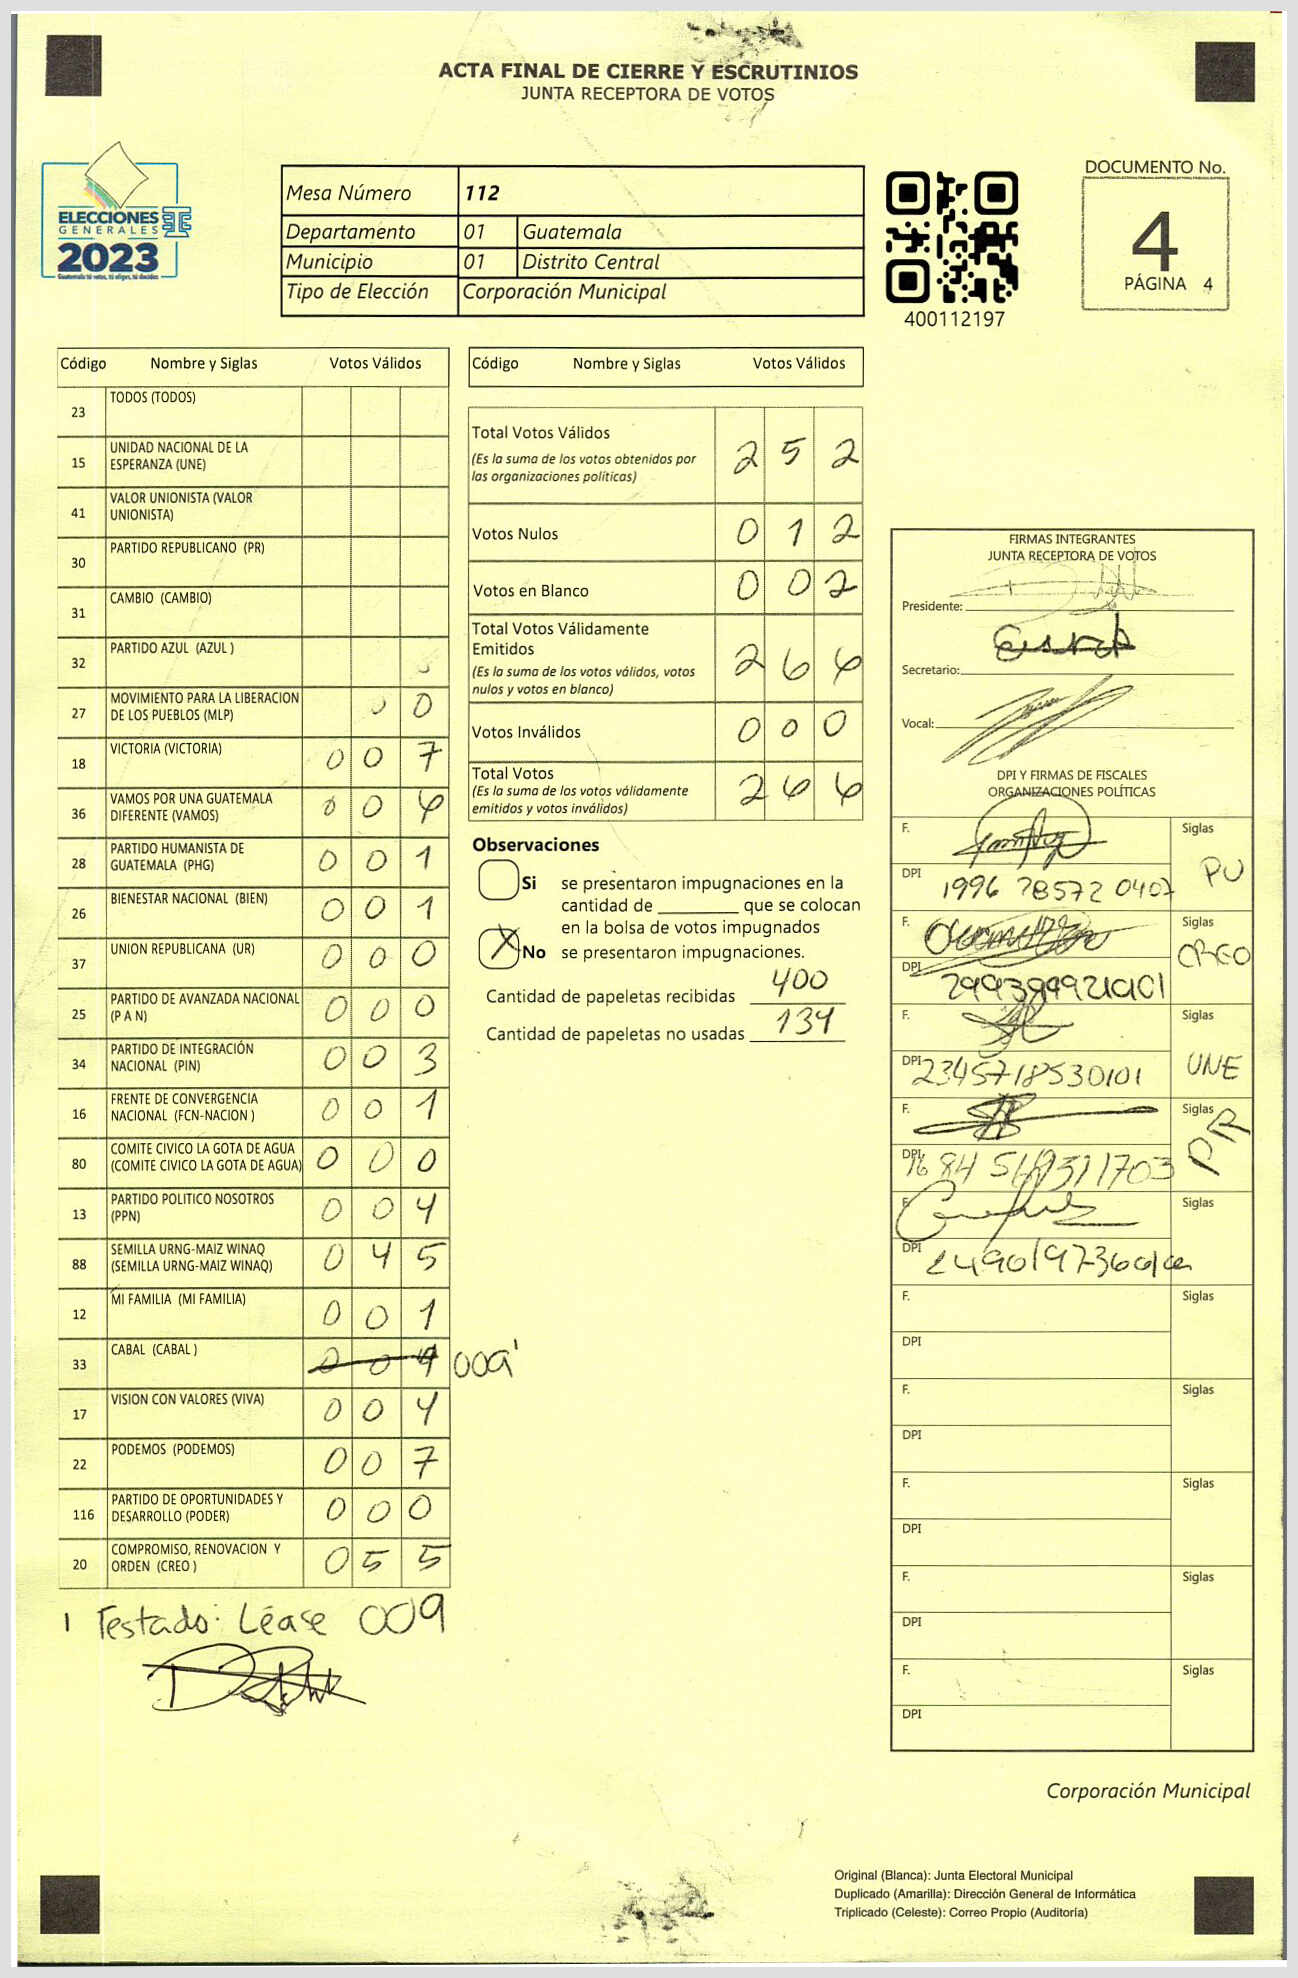 ACTA FINAL DE CIERRE Y ESCRUTINIOS
JUNTA RECEPTORA DE VOTOS
ELECCIONES
GENERALES
2023
Guatemala: tú votas, tú eliges, tú decides
Mesa Número 112
Departamento 01 Guatemala
Municipio 01 Distrito Central
Tipo de Elección Corporación Municipal
400112197
DOCUMENTO No.
4
PÁGINA 4
Código Nombre y Siglas Votos Válidos
23 TODOS (TODOS)
15 UNIDAD NACIONAL DE LA ESPERANZA (UNE)
41 VALOR UNIONISTA (VALOR UNIONISTA)
30 PARTIDO REPUBLICANO (PR)
31 CAMBIO (CAMBIO)
32 PARTIDO AZUL (AZUL )
27 MOVIMIENTO PARA LA LIBERACION DE LOS PUEBLOS (MLP) 0
18 VICTORIA (VICTORIA) 0 0 7
36 VAMOS POR UNA GUATEMALA DIFERENTE (VAMOS) 0 0
28 PARTIDO HUMANISTA DE GUATEMALA (PHG) 0 0 1
26 BIENESTAR NACIONAL (BIEN) 0 0 1
37 UNION REPUBLICANA (UR) 0 0 0
25 PARTIDO DE AVANZADA NACIONAL (P A N) 0 0 0
34 PARTIDO DE INTEGRACIÓN NACIONAL (PIN) 0 0 3
16 FRENTE DE CONVERGENCIA NACIONAL (FCN-NACION ) 0 0 1
80 COMITE CIVICO LA GOTA DE AGUA (COMITE CIVICO LA GOTA DE AGUA) 0 0 0
13 PARTIDO POLITICO NOSOTROS (PPN) 0 0 4
88 SEMILLA URNG-MAIZ WINAQ (SEMILLA URNG-MAIZ WINAQ) 0 4 5
12 MI FAMILIA (MI FAMILIA) 0 0 1
33 CABAL (CABAL ) 0 0 9 009 1
17 VISION CON VALORES (VIVA) 0 0 4
22 PODEMOS (PODEMOS) 0 0 7
116 PARTIDO DE OPORTUNIDADES Y DESARROLLO (PODER) 0 0 0
20 COMPROMISO, RENOVACION Y ORDEN (CREO ) 0 5 5
1 Testado: Léase 009
Código Nombre y Siglas Votos Válidos
Total Votos Válidos 2 5 2
(Es la suma de los votos obtenidos por
las organizaciones políticas)
Votos Nulos 0 1 2
Votos en Blanco 0 0 2
Total Votos Válidamente
Emitidos 2 6 6
(Es la suma de los votos válidos, votos
nulos y votos en blanco)
Votos Inválidos 0 0 0
Total Votos 2 6 6
(Es la suma de los votos válidamente
emitidos y votos inválidos)
Observaciones
Si se presentaron impugnaciones en la
cantidad de ________ que se colocan
en la bolsa de votos impugnados
X No se presentaron impugnaciones.
Cantidad de papeletas recibidas 400
Cantidad de papeletas no usadas 134
FIRMAS INTEGRANTES
JUNTA RECEPTORA DE VOTOS
Presidente:
Secretario:
Vocal:
DPI Y FIRMAS DE FISCALES
ORGANIZACIONES POLÍTICAS
F. Siglas PU
DPI 1996 78572 0407
F. Siglas CREO
DPI
F. Siglas UNE
DPI 2345718530101
F. Siglas PR
DPI
F. Siglas
DPI
F. Siglas
DPI
F. Siglas
DPI
F. Siglas
DPI
F. Siglas
DPI
F. Siglas
DPI
Corporación Municipal
Original (Blanca): Junta Electoral Municipal
Duplicado (Amarilla): Dirección General de Informática
Triplicado (Celeste): Correo Propio (Auditoría)